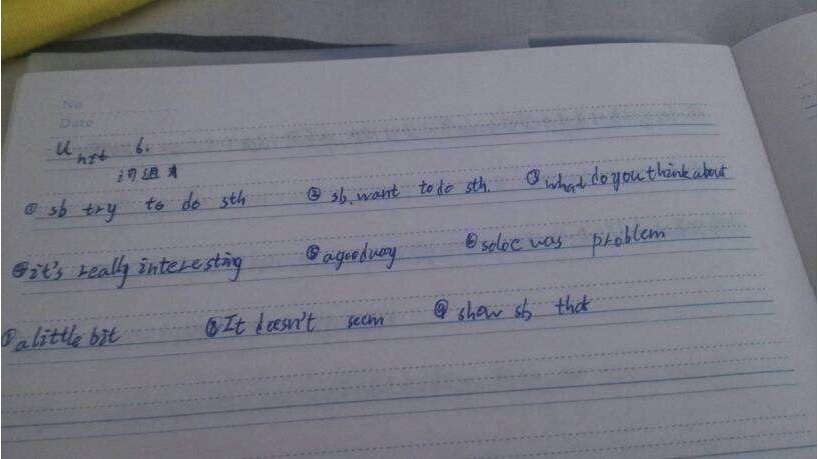 No
Date
Unit 6.
词组
① sb try to do sth ② sb. want to do sth. ③ what do you think about
④ it's really interesting ⑤ a good way ⑥ was problem
⑦ a little bit ⑧ It doesn't seem ⑨ show sb that